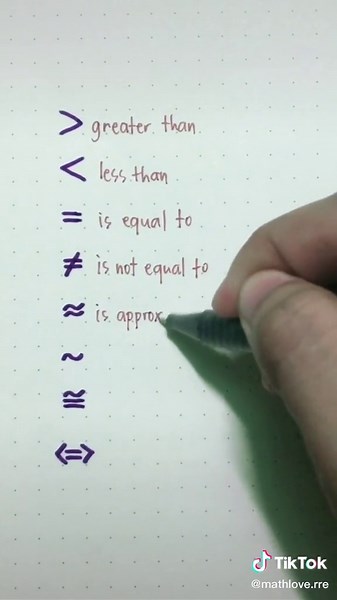 > greater than
< less than
= is equal to
≠ is not equal to
≈ is approx
~
≅
<=>
TikTok
@mathlove.rre